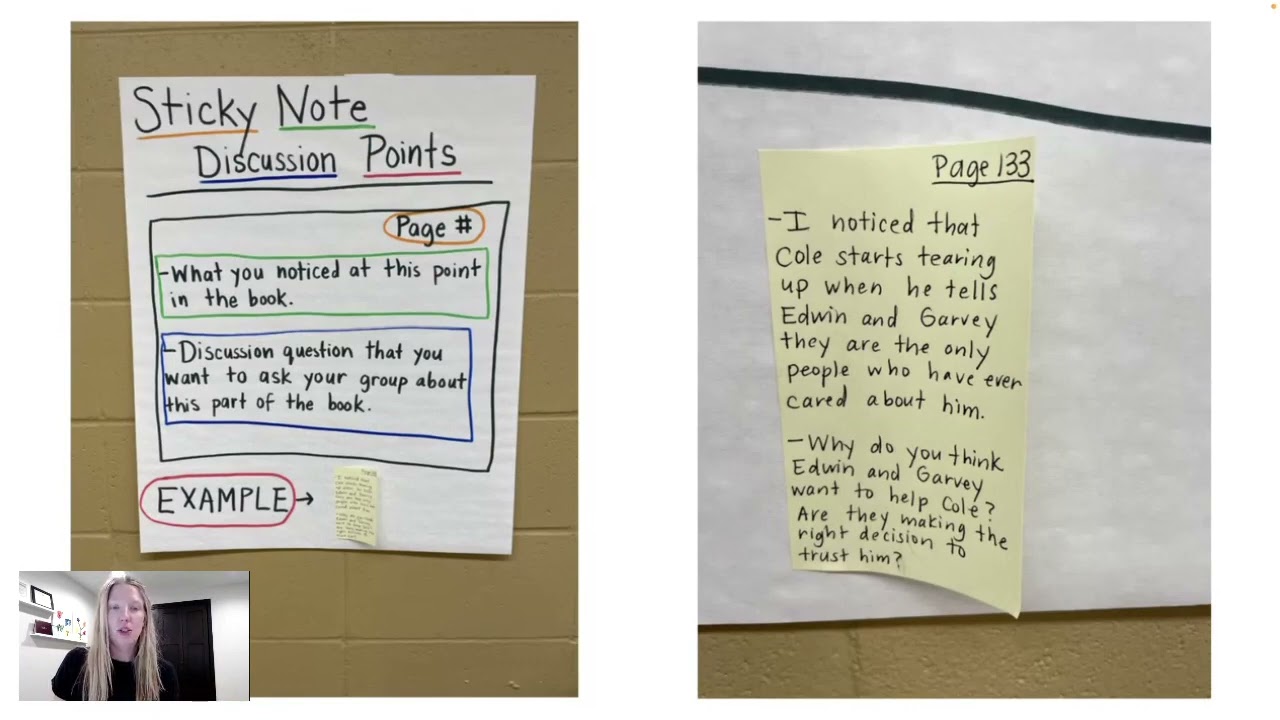 Sticky Note
Discussion Points
Page #
-What you noticed at this point
in the book.
-Discussion question that you
want to ask your group about
this part of the book.
EXAMPLE→
Page 133
-I noticed that
Cole starts tearing
up when he tells
Edwin and Garvey
they are the only
people who have ever
cared about him.
-Why do you think
Edwin and Garvey
want to help Cole?
Are they making the
right decision to
trust him?